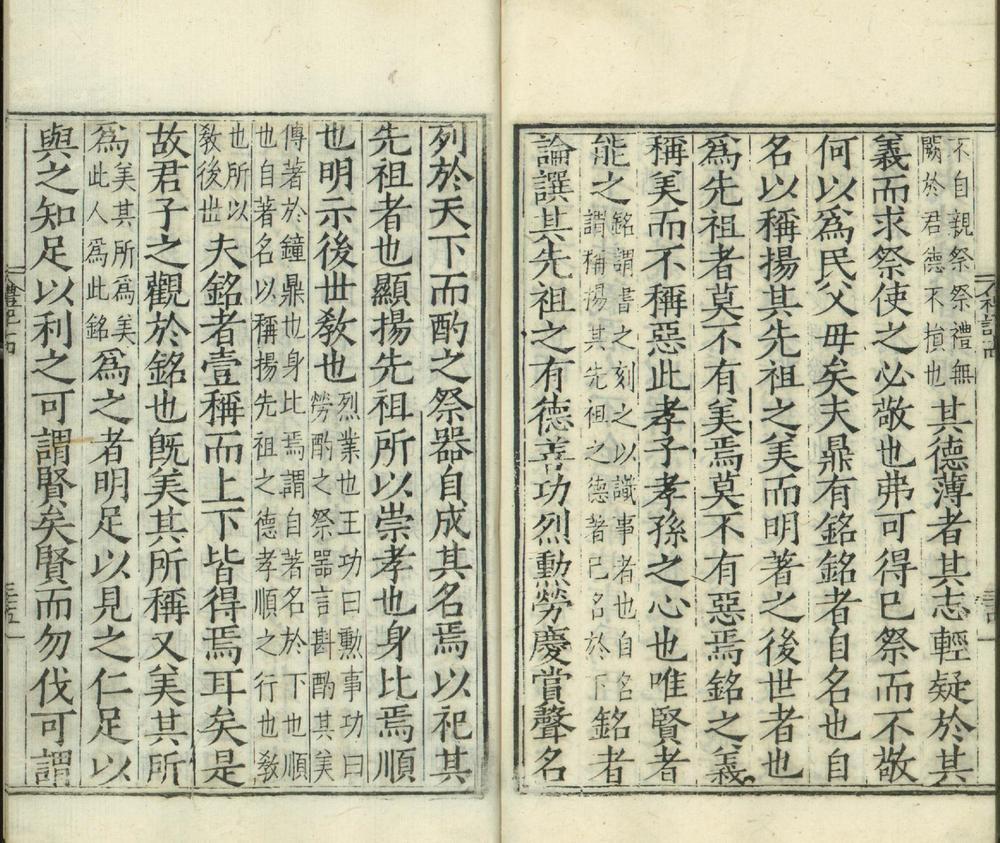 不自親祭祭禮無
闕於君德不損也
其德薄者其志輕疑於其
義而求祭使之必敬也弗可得已祭而不敬
何以爲民父母矣夫鼎有銘銘者自名也自
名以稱揚其先祖之美而明著之後世者也
爲先祖者莫不有美焉莫不有惡焉銘之義
稱美而不稱惡此孝子孝孫之心也唯賢者
能之
銘謂書之刻之以識事者也自名
謂稱揚其先祖之德著己名於下
銘者
論譔其先祖之有德善功烈勳勞慶賞聲名
列於天下而酌之祭器自成其名焉以祀其
先祖者也顯揚先祖所以崇孝也身比焉順
也明示後世教也
烈業也王功曰勳事功曰
勞酌之祭器言斟酌其美
傳著於鐘鼎也身比焉謂自著名於下也順
也自著名以稱揚先祖之德孝順之行也教
也所以
教後世
夫銘者壹稱而上下皆得焉耳矣是
故君子之觀於銘也既美其所稱又美其所
爲
美其所爲美
此人爲此銘
爲之者明足以見之仁足以
與之知足以利之可謂賢矣賢而勿伐可謂